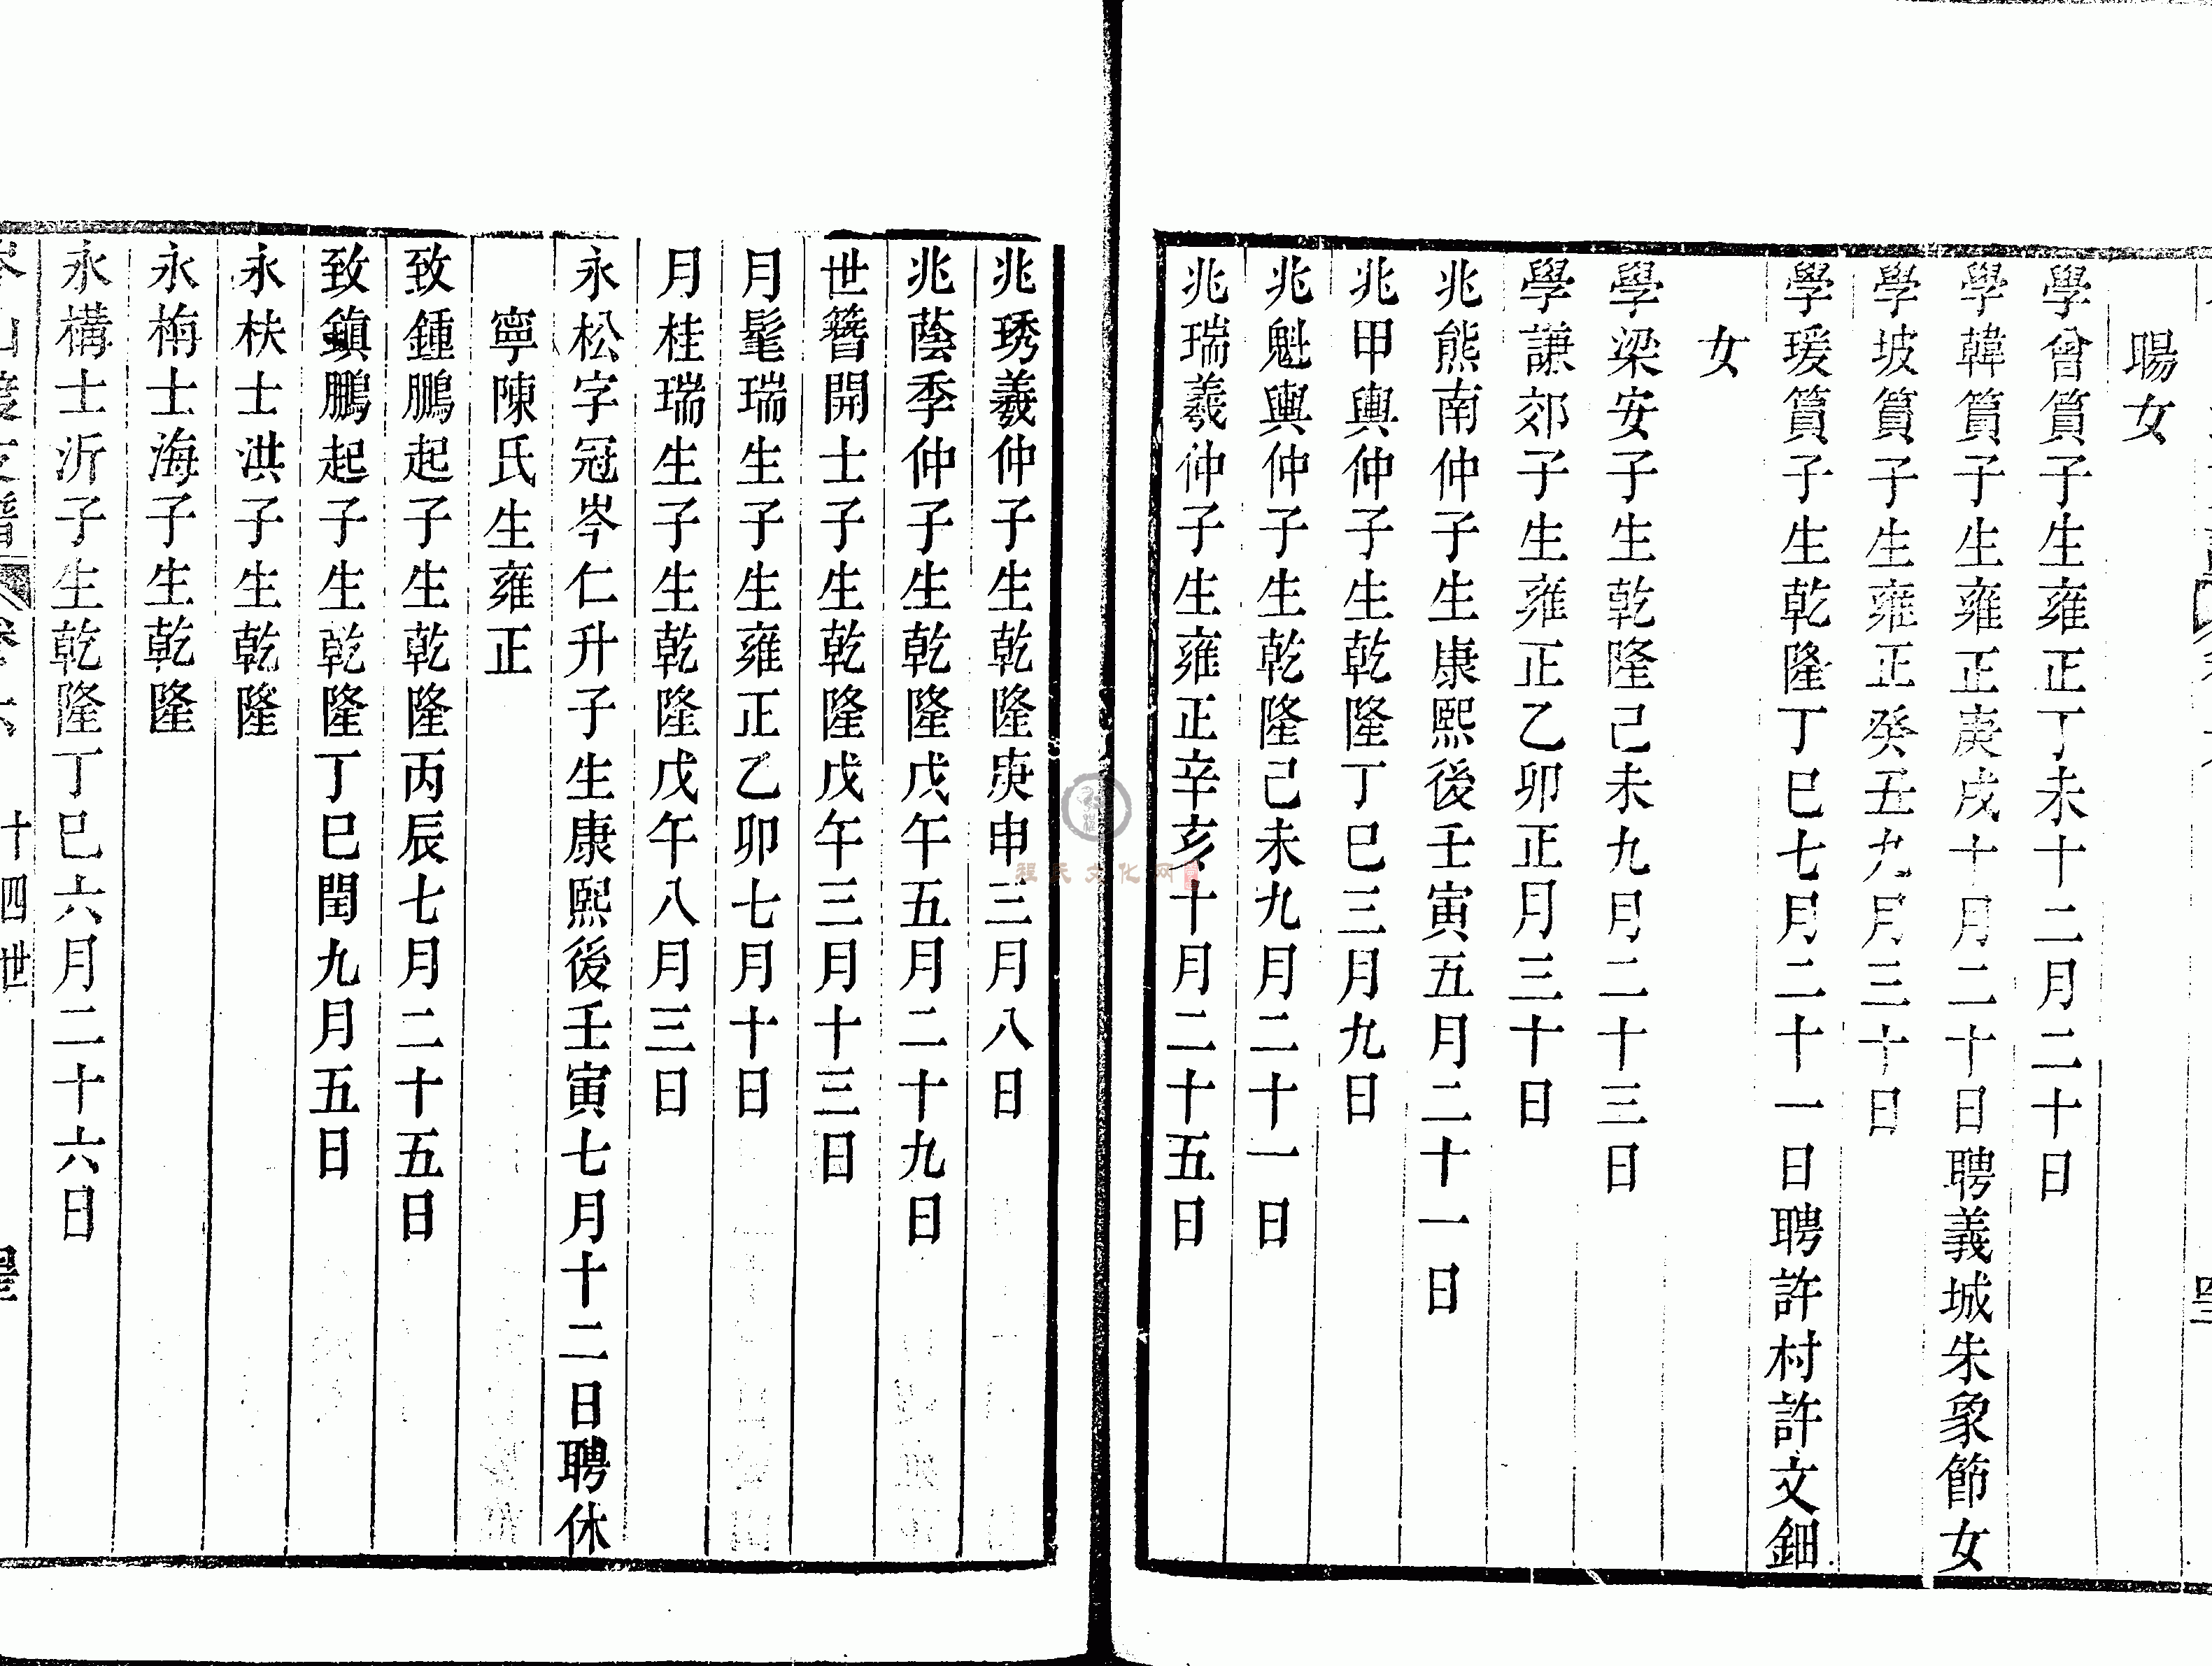 暘女
學曾篔子生雍正丁未十二月二十日
學韓篔子生雍正庚戌十月二十日聘義城朱象節女
學坡篔子生雍正癸丑九月三十日
學瑗篔子生乾隆丁巳七月二十一日聘許村許文鈿
女
學梁安子生乾隆己未九月二十三日
學謙郊子生雍正乙卯正月三十日
兆熊南仲子生康熙後壬寅五月二十一日
兆甲輿仲子生乾隆丁巳三月九日
兆魁輿仲子生乾隆己未九月二十一日
兆瑞羲仲子生雍正辛亥十月二十五日
兆琇羲仲子生乾隆庚申三月八日
兆蔭季仲子生乾隆戊午五月二十九日
世簪開士子生乾隆戊午三月十三日
月髦瑞生子生雍正乙卯七月十日
月桂瑞生子生乾隆戊午八月三日
永松字冠岑仁升子生康熙後壬寅七月十二日聘休
寧陳氏生雍正
致鍾鵬起子生乾隆丙辰七月二十五日
致鎮鵬起子生乾隆丁巳閏九月五日
永枎士洪子生乾隆
永栴士海子生乾隆
永構士沂子生乾隆丁巳六月二十六日
岑山渡支譜 卷六 十四世
程氏文化网